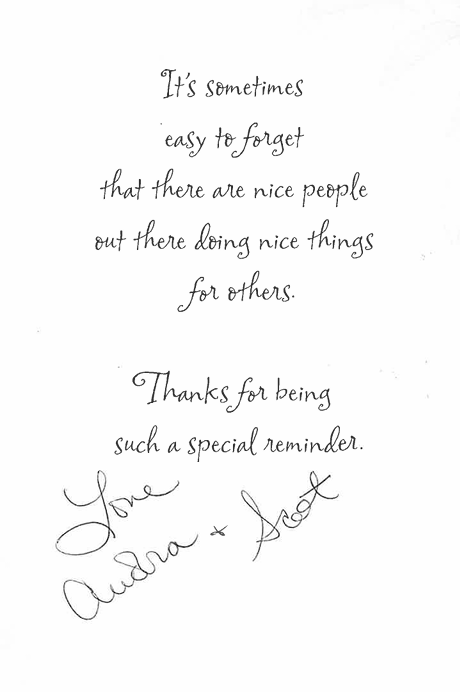 It's sometimes
easy to forget
that there are nice people
out there doing nice things
for others.
Thanks for being
such a special reminder.
Love
Audra + Scot